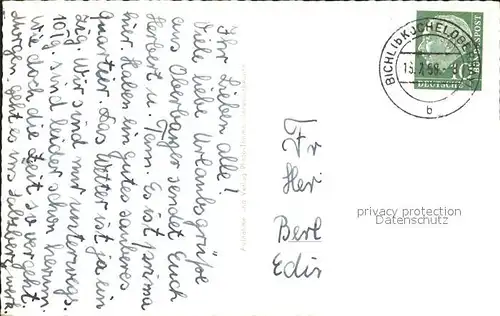 Ihr Lieben alle!
Viele liebe Urlaubsgrüße
aus Oberbayer sendet Euch
Herbert u. Fam. Es ist prima
hier. Haben ein gutes sauberes
Quartier. Das Wetter ist ja ein
zig. Wir sind nur unterwegs.
10 Tg. sind leider schon herum.
Wie doch die Zeit so vergeht.
Morgen geht es ins Salzbergwerk.
DEUTSCHE
BUNDESPOST
10
b
Fr
Her
Berl
Edis
privacy protection
Datenschutz